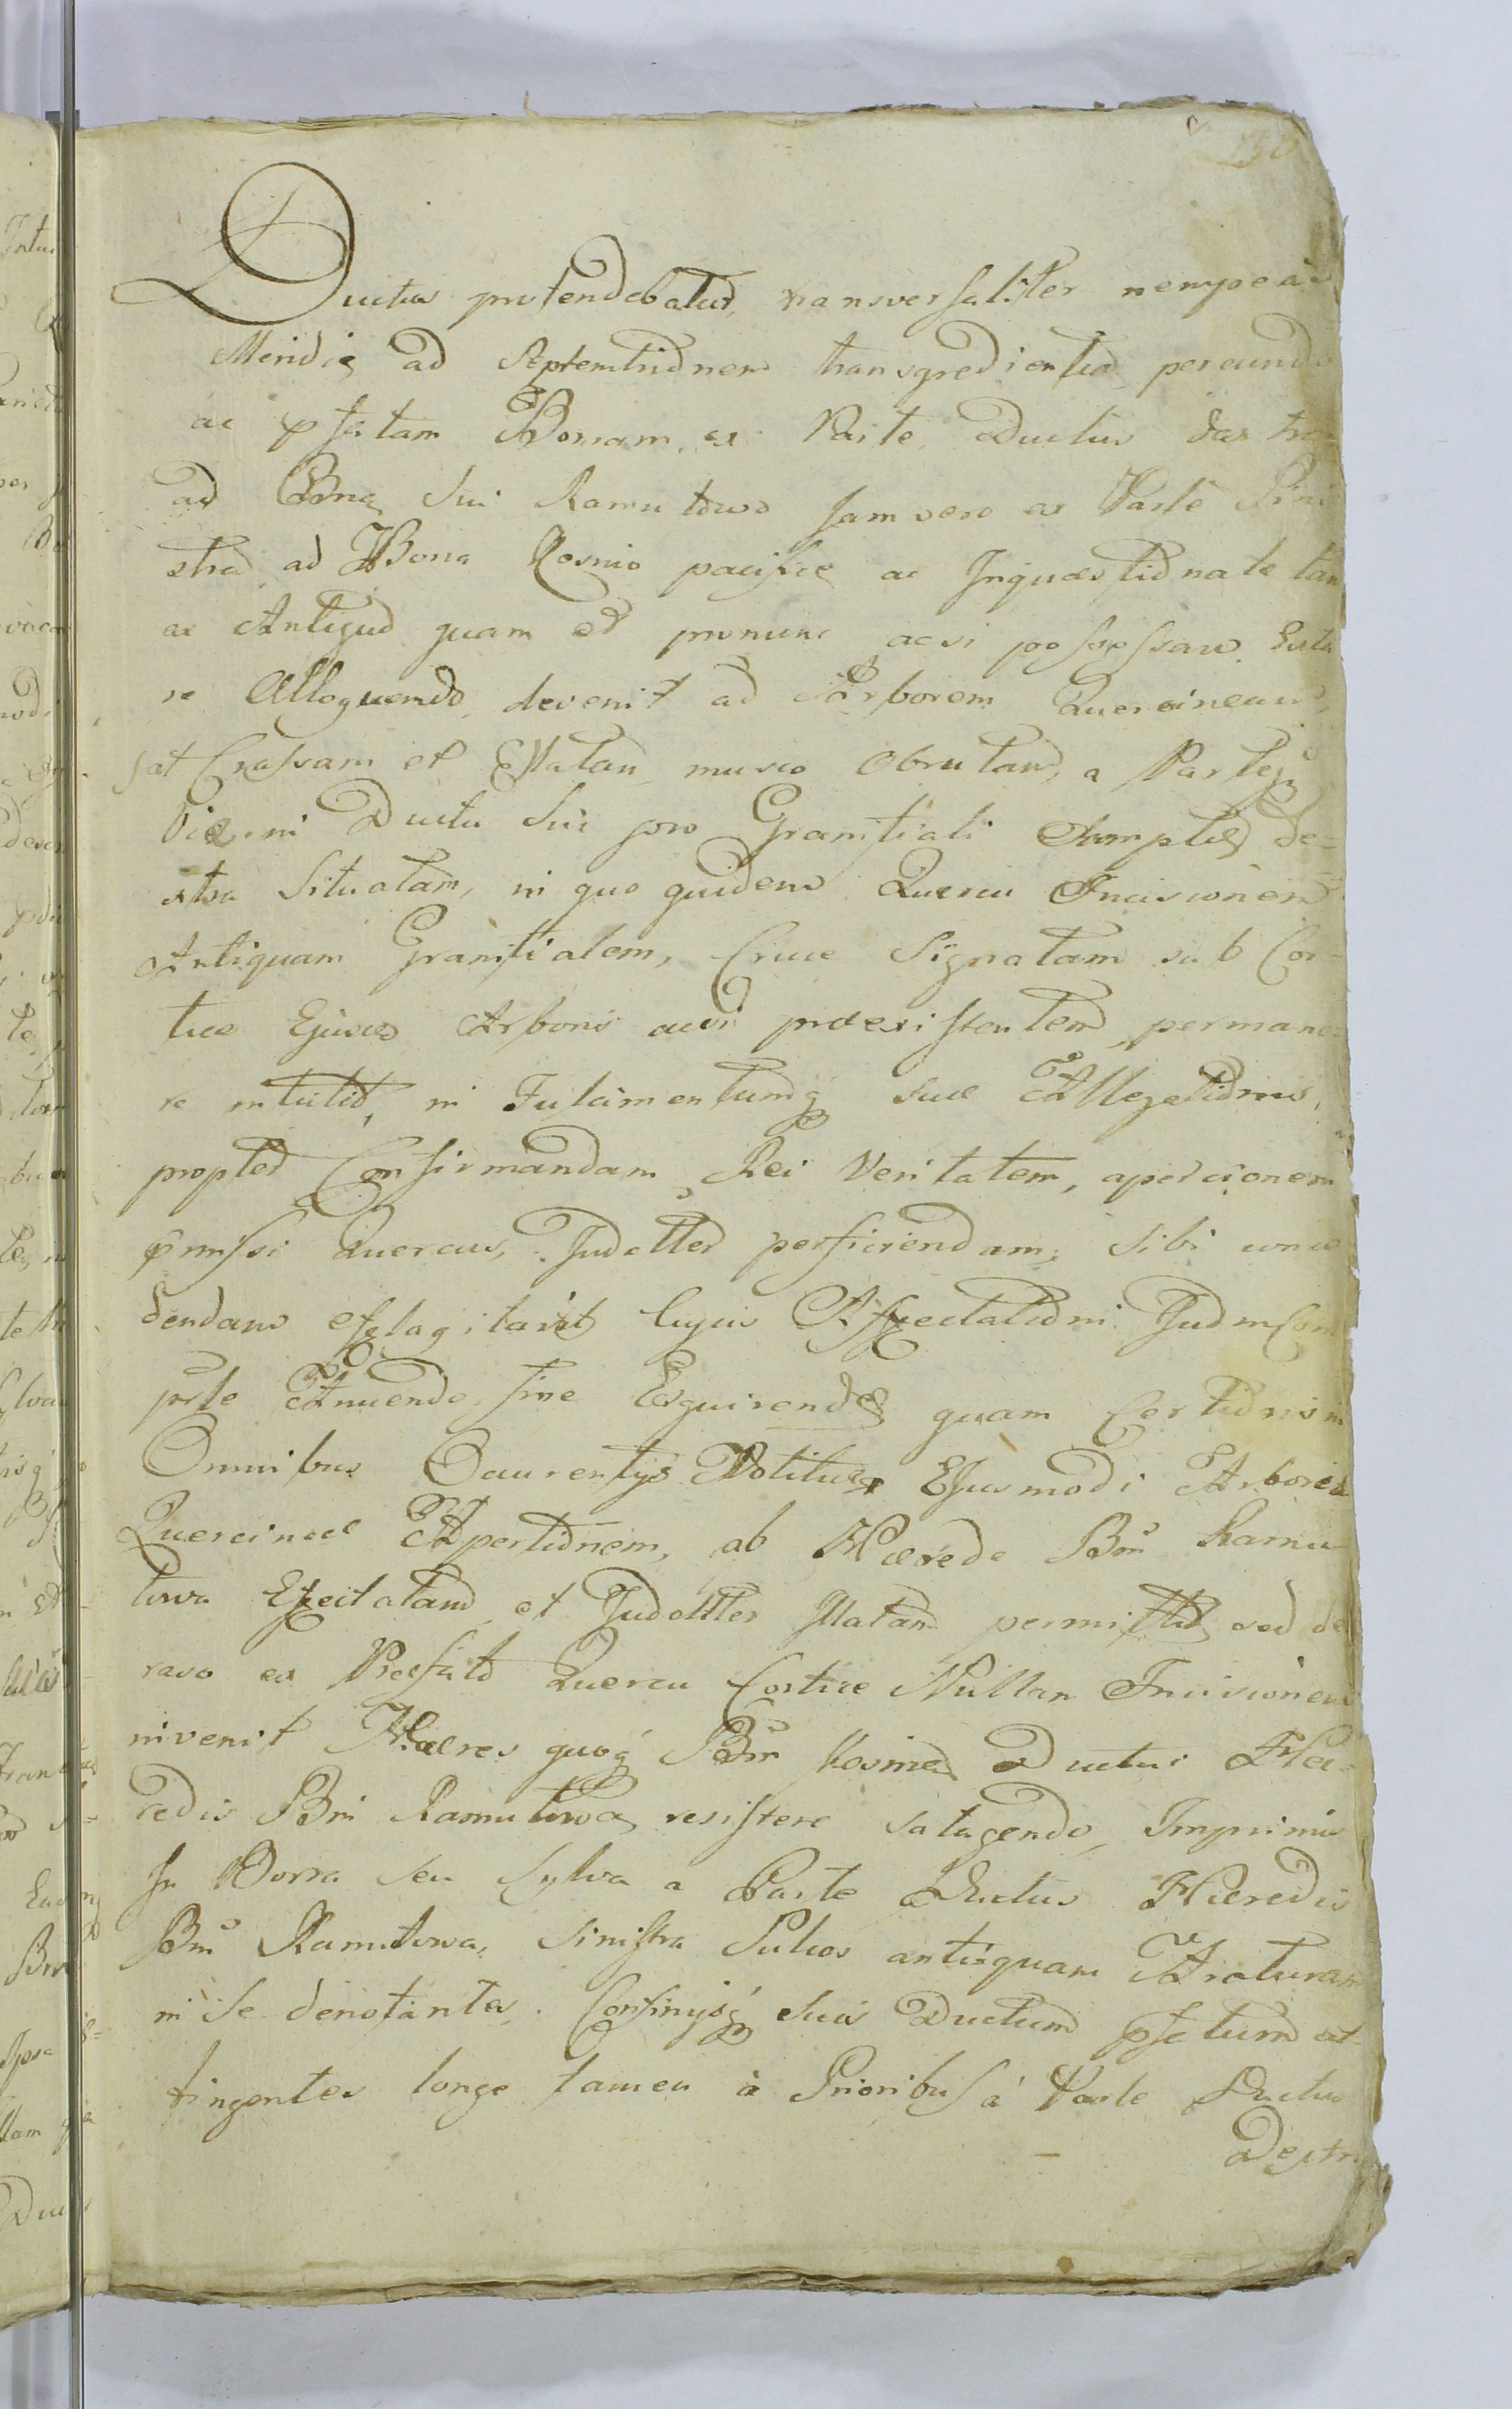 130
Ductus protendebatur, transversaliter nempe a
Meridie ad Septemtrionem transgredientia pereundo
ac pfatam Borram, ex Parte Ductus dextra
ad Bona Sui Ramultowo Jam vero ex Parte Sini
stra ad Bona Kosmio pacifice ac Inquaestionate tam
ex Antiquo quam et pronunc acsi possessam. Ext
re Alloquendo, devenit ad Arborem Quercineam,
sat Crassam et Elatam musco Obrutam, a Parte
Viae in Ductu Sui pro Granitiali de=
xtra Situatam, in quo quidem Quercu Incisionem
Antiquam Granitialem, Cruce Signatam sub Cor=
tice Ejusce Arboris acsi praeexistentem, permane
re intulit, in Fulcimentumq suae Allegationis,
propter Confirmandam Rei Veritatem, apercionem
pmissi Quercus, Judctter perficiendam, Sibi conce
dendam efflagitavit Cujus Affectationi Judm Com
prte Annuendo, fine Exquirendae quam Certionis in
Omnibus Ocurentys Notitiae Ejusmodi Arboris
Quercineae Apertionem, ab Haerede Bm Ramu
towa Efectatam et Judctter Illatam permittit sed de
raso ex Praefato Quercu Cortice Nullam Incisionem
invenit Haeres quoq Bm Kosmia Ductui Hae=
redis Bm Ramutowa resistere satagendo, Imprimis
In Borra seu Sylva a Parte Ductus Haeredis
Bm Ramutowa, Sinistra Sulcos antiquam Araturam
in se denotantes, Confinysq suis Ductum pfctum at=
tingentes longe tamen à Prioribus à Parte Ductus
Dextra